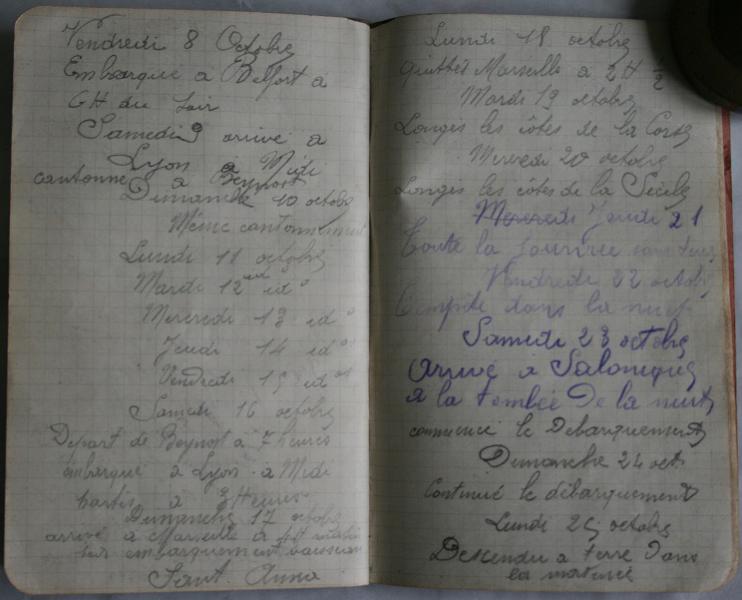 Vendredi 8 Octobre
Embarqué a Belfort a
6H du soir
Samedi 9 arrivé a
Lyon a Midi
cantonné a Beynost
Dimanche 10 octobre
Même cantonnement
Lundi 11 octobre
Mardi 12 id°
Mercredi 13 id°
Jeudi 14 id°
Vendredi 15 id°
Samedi 16 octobre
Départ de Beynost a 7 heures
embarqué a Lyon a Midi
Partis a 3 Heures
Dimanche 17 octobre
arrivé a Marseille a 4H
embarquement
Sant Anna
Lundi 18 octobre
quittés Marseille a 2H ½
Mardi 19 octobre
Longis les côtes de la Corse
Mercredi 20 octobre
Longis les côtes de la Sicile
Mercredi Jeudi 21
Toute la journée
Vendredi 22 octobre
Tempête dans la nuit
Samedi 23 octobre
Arrivé a Salonique
a la tombée De la nuit
commencé le Debarquement
Dimanche 24 oct.
Continué le débarquement
Lundi 25 octobre
Descendu a terre Dans
la matinée